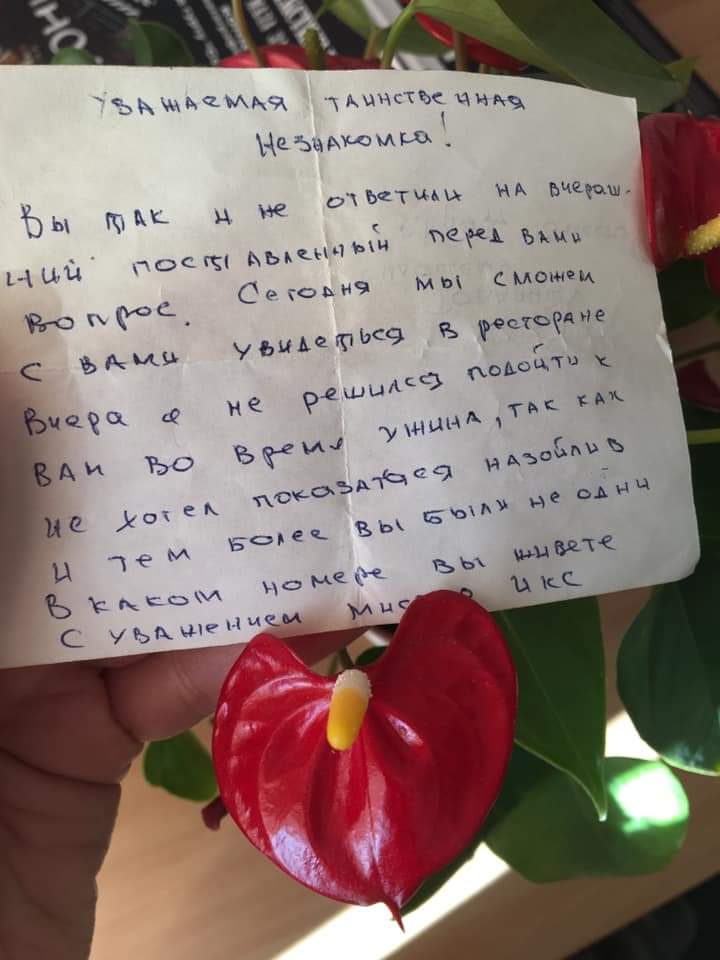 Уважаемая таинственная
Незнакомка!
Вы так и не ответили на вчераш-
ний поставленный перед вами
вопрос. Сегодня мы сможем
с вами увидеться в ресторане
Вчера я не решился подойти к
вам во время ужина, так как
не хотел показаться назойлив
и тем более вы были не одни
В каком номере вы живете
С уважением Икс